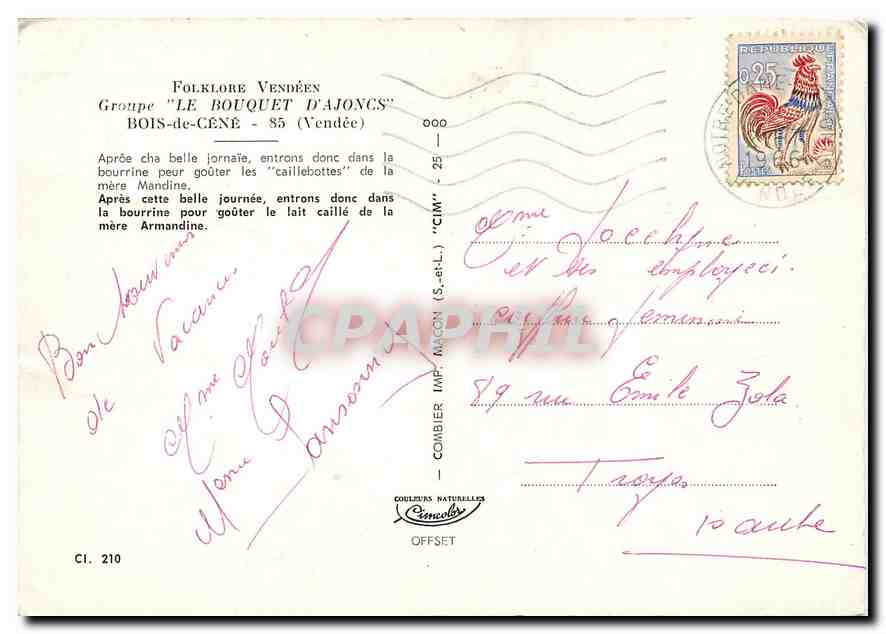 FOLKLORE VENDÉEN
Groupe "LE BOUQUET D'AJONCS"
BOIS-de-CÉNÉ - 85 (Vendée)
Aprôe cha belle jornaïe, entrons donc dans la
bourrine peur goûter les "caillebottes" de la
mère Mandine.
Après cette belle journée, entrons donc dans
la bourrine pour goûter le lait caillé de la
mère Armandine.
Bon Souvenir
de Vacances
Mme
COMBIER IMP. MACON (S.-et-L.) "CIM" - 25 - 000
COULEURS NATURELLES
Cimcolor
OFFSET
CI. 210
REPUBLIQUE FRANÇAISE
0,25
POSTES
NOTRE DAME
Mme Jocelyne
et ses employées
coiffure feminin
89 rue Emile Zola
Troyes
Aube
CPAPHIL